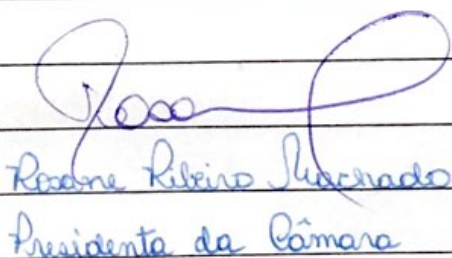 Rosane Ribeiro Machado
Presidenta da Câmara